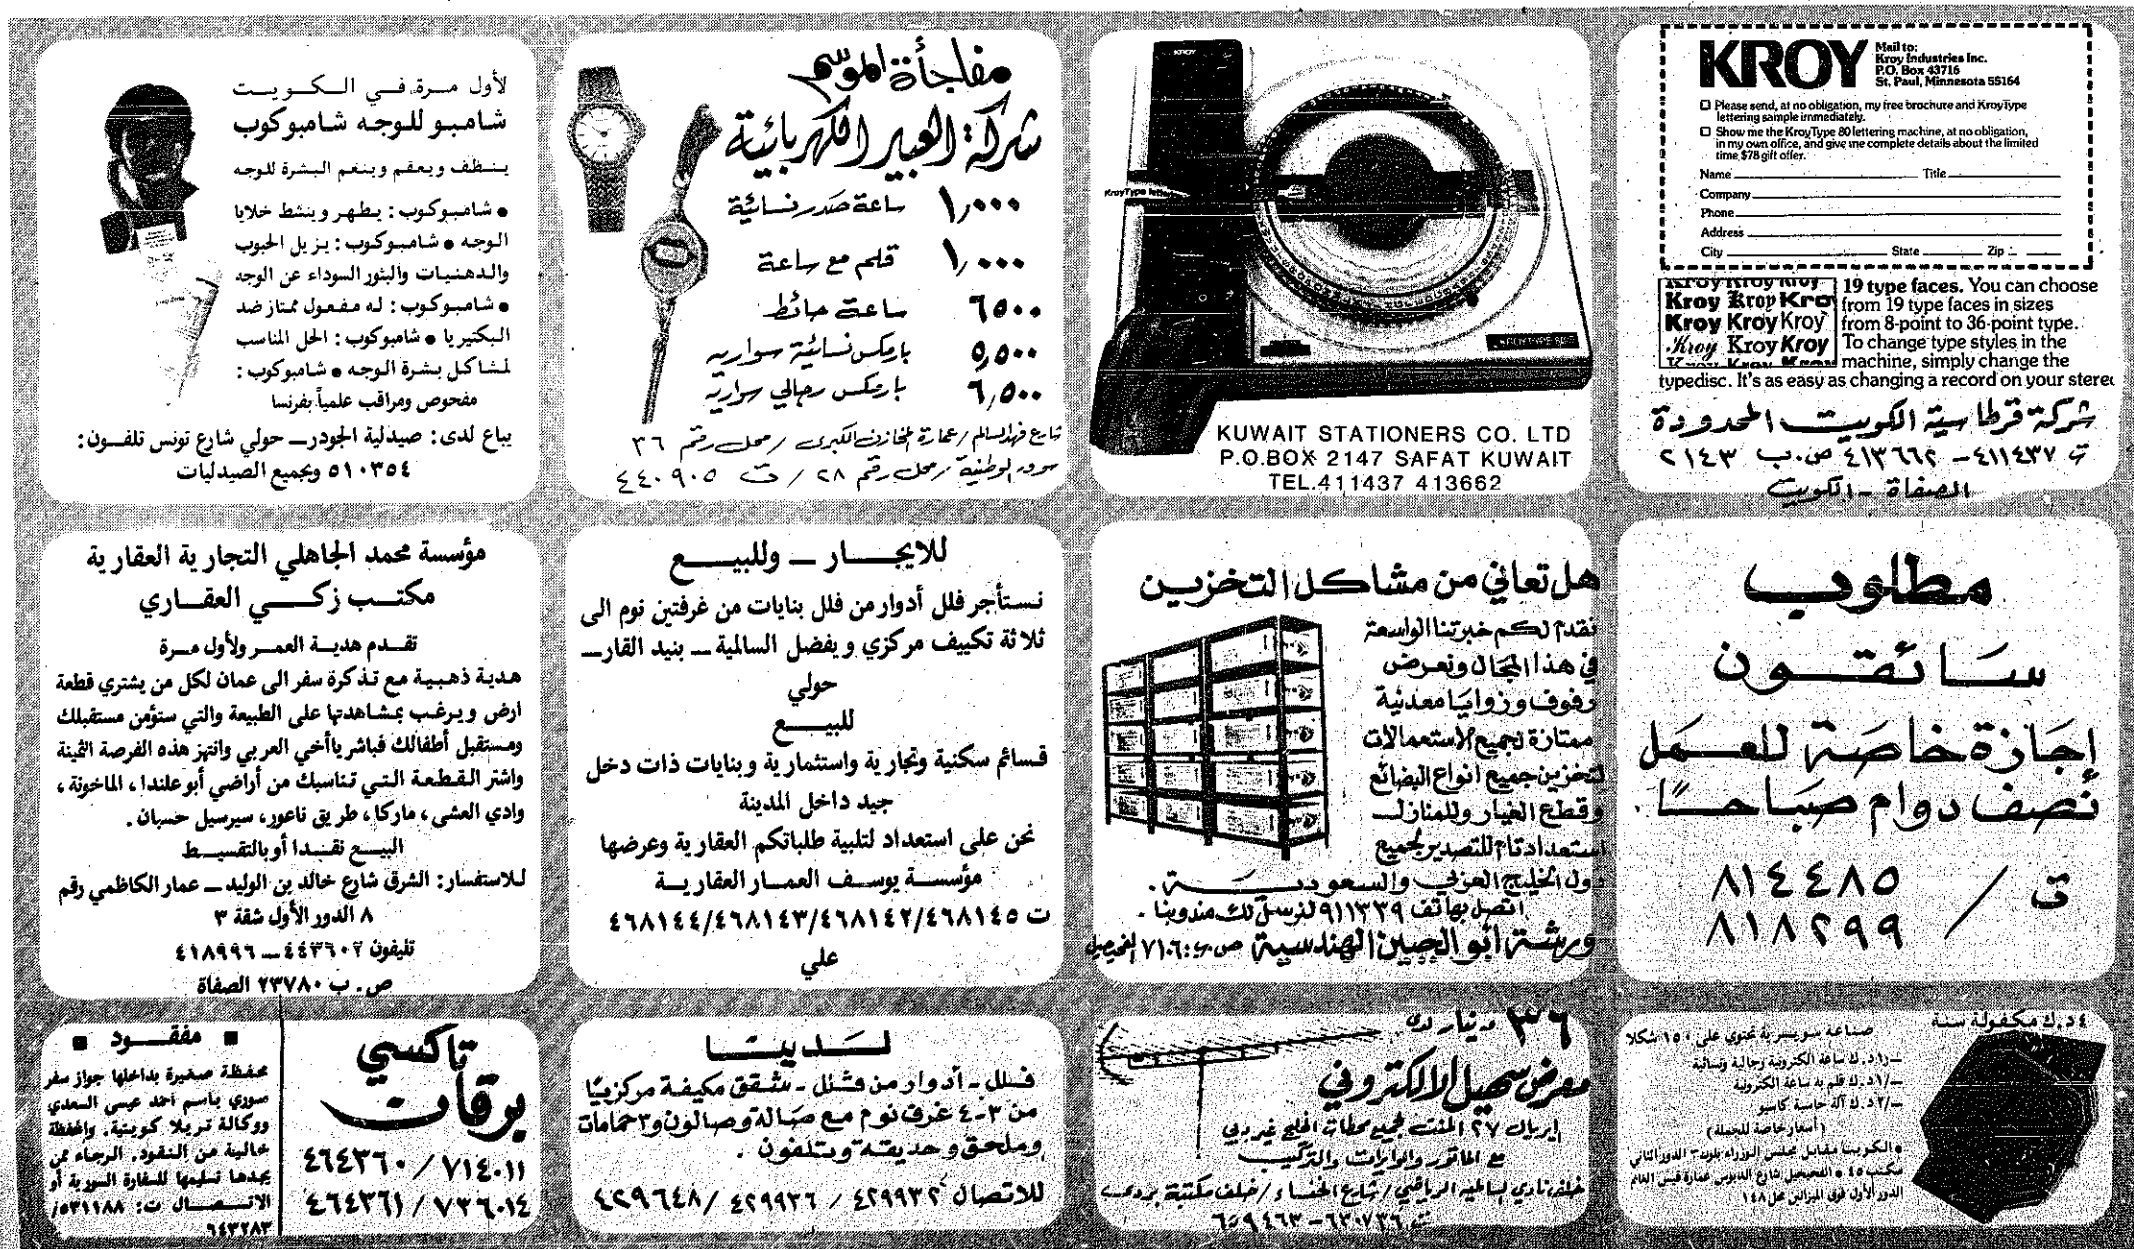 KROY
Mail to:
Kroy Industries Inc.
P.O. Box 43716
St. Paul, Minnesota 55164
Please send, at no obligation, my free brochure and KroyType
lettering sample immediately.
Show me the KroyType 80 lettering machine, at no obligation,
in my own office, and give me complete details about the limited
time $78 gift offer.
Name Title
Company
Phone
Address
City State Zip
Kroy Kroy Kroy
Kroy Kroy Kroy
Kroy Kroy Kroy
19 type faces. You can choose
from 19 type faces in sizes
from 8-point to 36-point type.
To change type styles in the
machine, simply change the
typedisc. It's as easy as changing a record on your stereo
شركة قرطاسية الكويت المحدودة
ت ٤١١٤٣٧ - ٤١٣٦٦٢ ص.ب ٢١٤٣
الصفاة - الكويت
KROY
KUWAIT STATIONERS CO. LTD
P.O.BOX 2147 SAFAT KUWAIT
TEL.411437 413662
مفاجأة الموسم
شركة العبير الكهربائية
١,٠٠٠ ساعة صدر نسائية
١,٠٠٠ قلم مع ساعة
٦٥٠٠ ساعة حائط
٥,٥٠٠ بارمكس نسائية سواريه
٦,٥٠٠ بارمكس رجالي سواريه
شارع فهد السالم / عمارة المخازن الكبرى / محل رقم ٣٦
سوق الوطنية / محل رقم ٢٨ / ت ٤٤٠٩٠٥
لأول مرة في الكويت
شامبو للوجه شامبوكوب
ينظف ويعقم وينعم البشرة للوجه
• شامبوكوب : يطهر وينشط خلايا
الوجه • شامبوكوب : يزيل الحبوب
والدهنيات والبثور السوداء عن الوجه
• شامبوكوب : له مفعول ممتاز ضد
البكتيريا • شامبوكوب : الحل المناسب
لمشاكل بشرة الوجه • شامبوكوب :
مفحوص ومراقب علمياً بفرنسا
يباع لدى : صيدلية الجودر — حولي شارع تونس تلفون :
٥١٠٣٥٤ وبجميع الصيدليات
مطلوب
سائقون
إجازة خاصة للعمل
نصف دوام صباحاً
ت / ٨١٤٤٨٥
٨١٨٢٩٩
هل تعاني من مشاكل التخزين
نقدم لكم خبرتنا الواسعة
في هذا المجال ونعرض
رفوف وزوايا معدنية
ممتازة لجميع الاستعمالات
لتخزين جميع انواع البضائع
وقطع الغيار وللمنازل
استعداد تام للتصدير لجميع
دول الخليج العربي والسعودية .
اتصل بهاتف ٩١١٣٣٩ لنرسل لك مندوبنا .
ورشة أبو الحسين الهندسية ص.ب: ٧١٠٦ الفحيحيل
للايجار — وللبيع
نستأجر فلل أدوار من فلل بنايات من غرفتين نوم الى
ثلاثة تكييف مركزي ويفضل السالمية — بنيد القار —
حولي
للبيع
قسائم سكنية وتجارية واستثمارية وبنايات ذات دخل
جيد داخل المدينة
نحن على استعداد لتلبية طلباتكم العقارية وعرضها
مؤسسة يوسف العمار العقارية
ت ٤٦٨١٤٥/٤٦٨١٤٢/٤٦٨١٤٣/٤٦٨١٤٤
علي
مؤسسة محمد الجاهلي التجارية العقارية
مكتب زكي العقاري
تقدم هدية العمر ولأول مرة
هدية ذهبية مع تذكرة سفر الى عمان لكل من يشتري قطعة
ارض ويرغب بمشاهدتها على الطبيعة والتي ستؤمن مستقبلك
ومستقبل أطفالك فباشر ياأخي العربي وانتهز هذه الفرصة الثمينة
واشتر القطعة التي تناسبك من أراضي أبو علندا ، الماخونة ،
وادي العشى ، ماركا ، طريق ناعور ، سيرسيل حسبان .
البيع نقدا أو بالتقسيط
للاستفسار : الشرق شارع خالد بن الوليد — عمار الكاظمي رقم
٨ الدور الأول شقة ٣
تليفون ٤٤٣٦٠٢ — ٤١٨٩٩٦
ص . ب ٢٣٧٨٠ الصفاة
٤ د.ك مكفولة سنة
صناعة سويسرية تحتوي على ١٥٠ شكلا
—/١ د.ك ساعة الكترونية رجالية ونسائية
—/١ د.ك قلم به ساعة الكترونية
—/٢ د.ك آلة حاسبة كاسيو
(أسعار خاصة للجملة)
• الكويت مقابل مجلس الوزراء بلوك ٣ الدور الثاني
مكتب ١٥ • الفحيحيل شارع الدبوس عمارة قيس الغانم
الدور الأول فوق الميزانين محل ١٤٨
٣٦ دينار لك
معرض سهيل الالكتروني
إيريال ٢٧ المنت لجميع محطات الخليج غير دبي
مع الماتور والوايرات والتركيب
خلف نادي السالمية الرياضي / شارع الخنساء / خلف مكتبة
ت ٦٣٠٧٣٦ - ٦٥٩٤٦٣
لدينا
فلل - أدوار من فلل - شقق مكيفة مركزيا
من ٣-٤ غرف نوم مع صالة وصالون و٣ حمامات
وملحق وحديقة وتلفون .
للاتصال ٤٢٩٩٣٢ / ٤٢٩٩٣٦ / ٤٢٩٦٤٨
تاكسي
برقان
٧١٤٠١١ / ٤٦٤٣٦٠
٧٣٦٠١٤ / ٤٦٤٣٦١
■ مفقود ■
محفظة صغيرة بداخلها جواز سفر
سوري باسم احمد عيسى السعدي
ووكالة تريلا كويتية . والمحفظة
خالية من النقود . الرجاء ممن
يجدها تسليمها للسفارة السورية أو
الاتصال ت : ٥٣١١٨٨/
٦٤٣٢٨٣